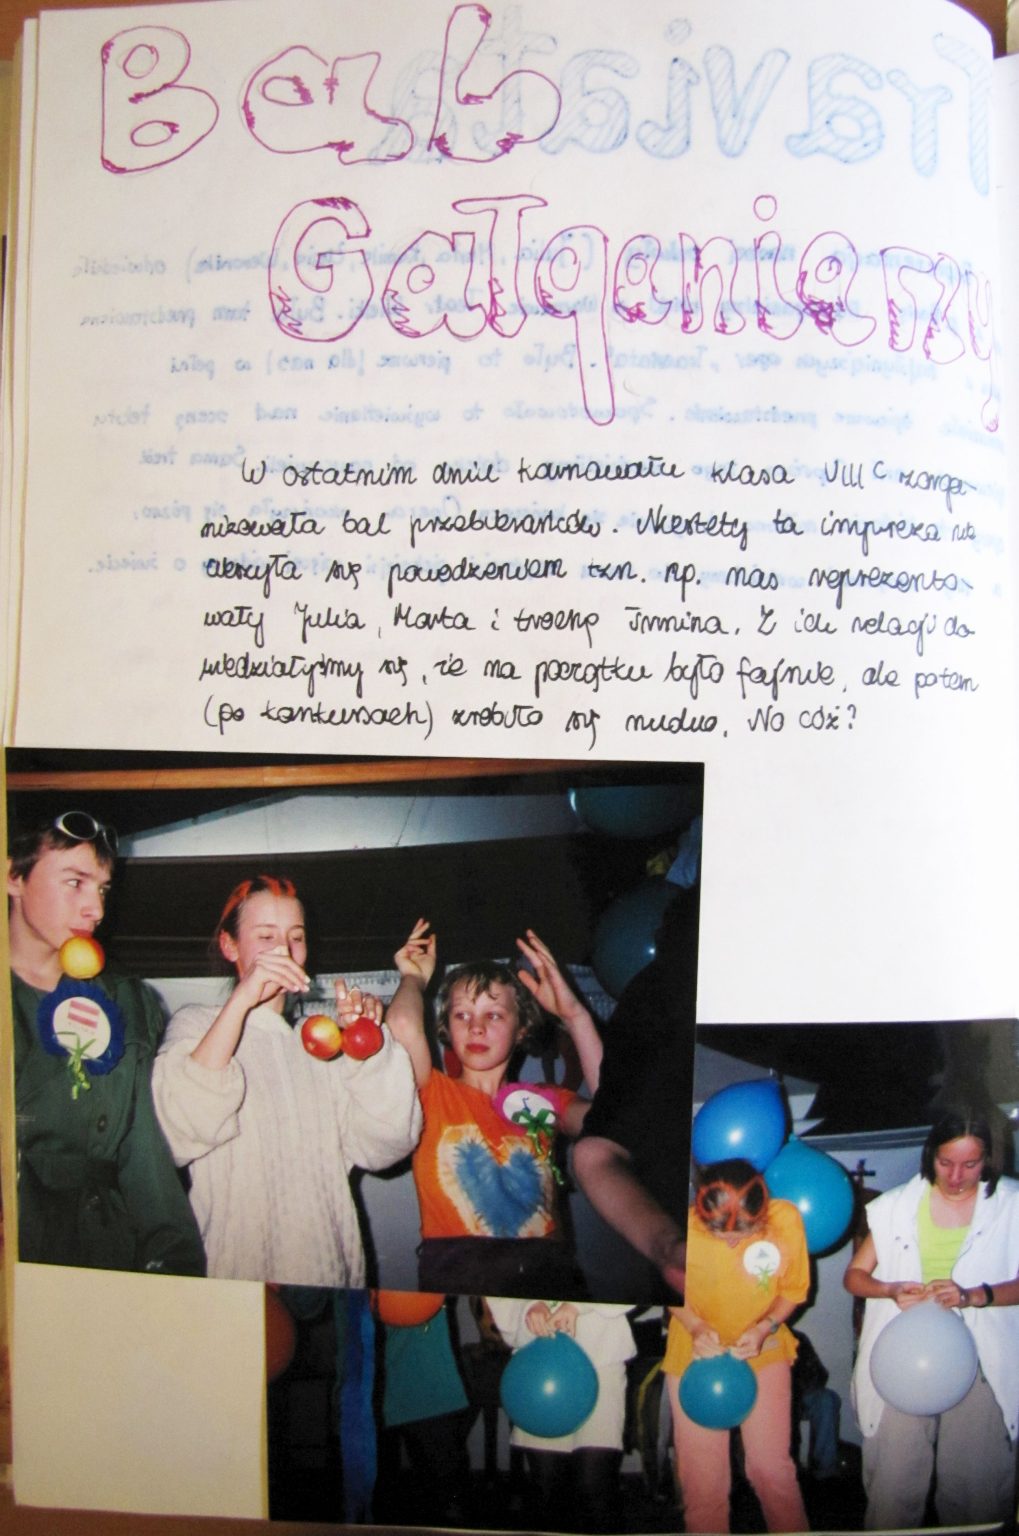 Bal
Gałganiarzy
W ostatnim dniu karnawału klasa VIII c zorga-
nizowała bal przebierańców. Niestety ta impreza nie
cieszyła się powodzeniem tzn. np. nas reprezento-
wały Julia, Marta i trochę Ismina. Z ich relacji do
wiedziałyśmy się, że na początku było fajnie, ale potem
(po konkursach) zrobiło się nudno. No cóż?